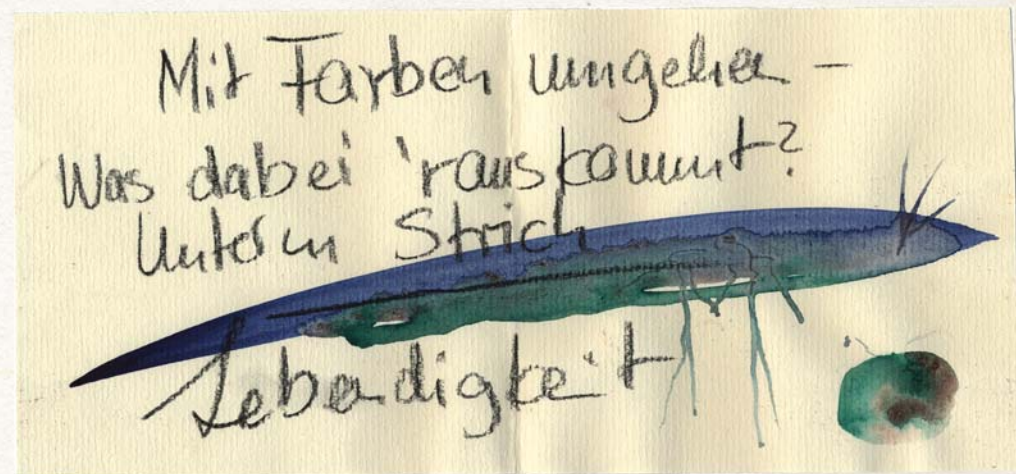 Mit Farben umgehen –
Was dabei 'rauskommt?
Unterm Strich
Lebendigkeit